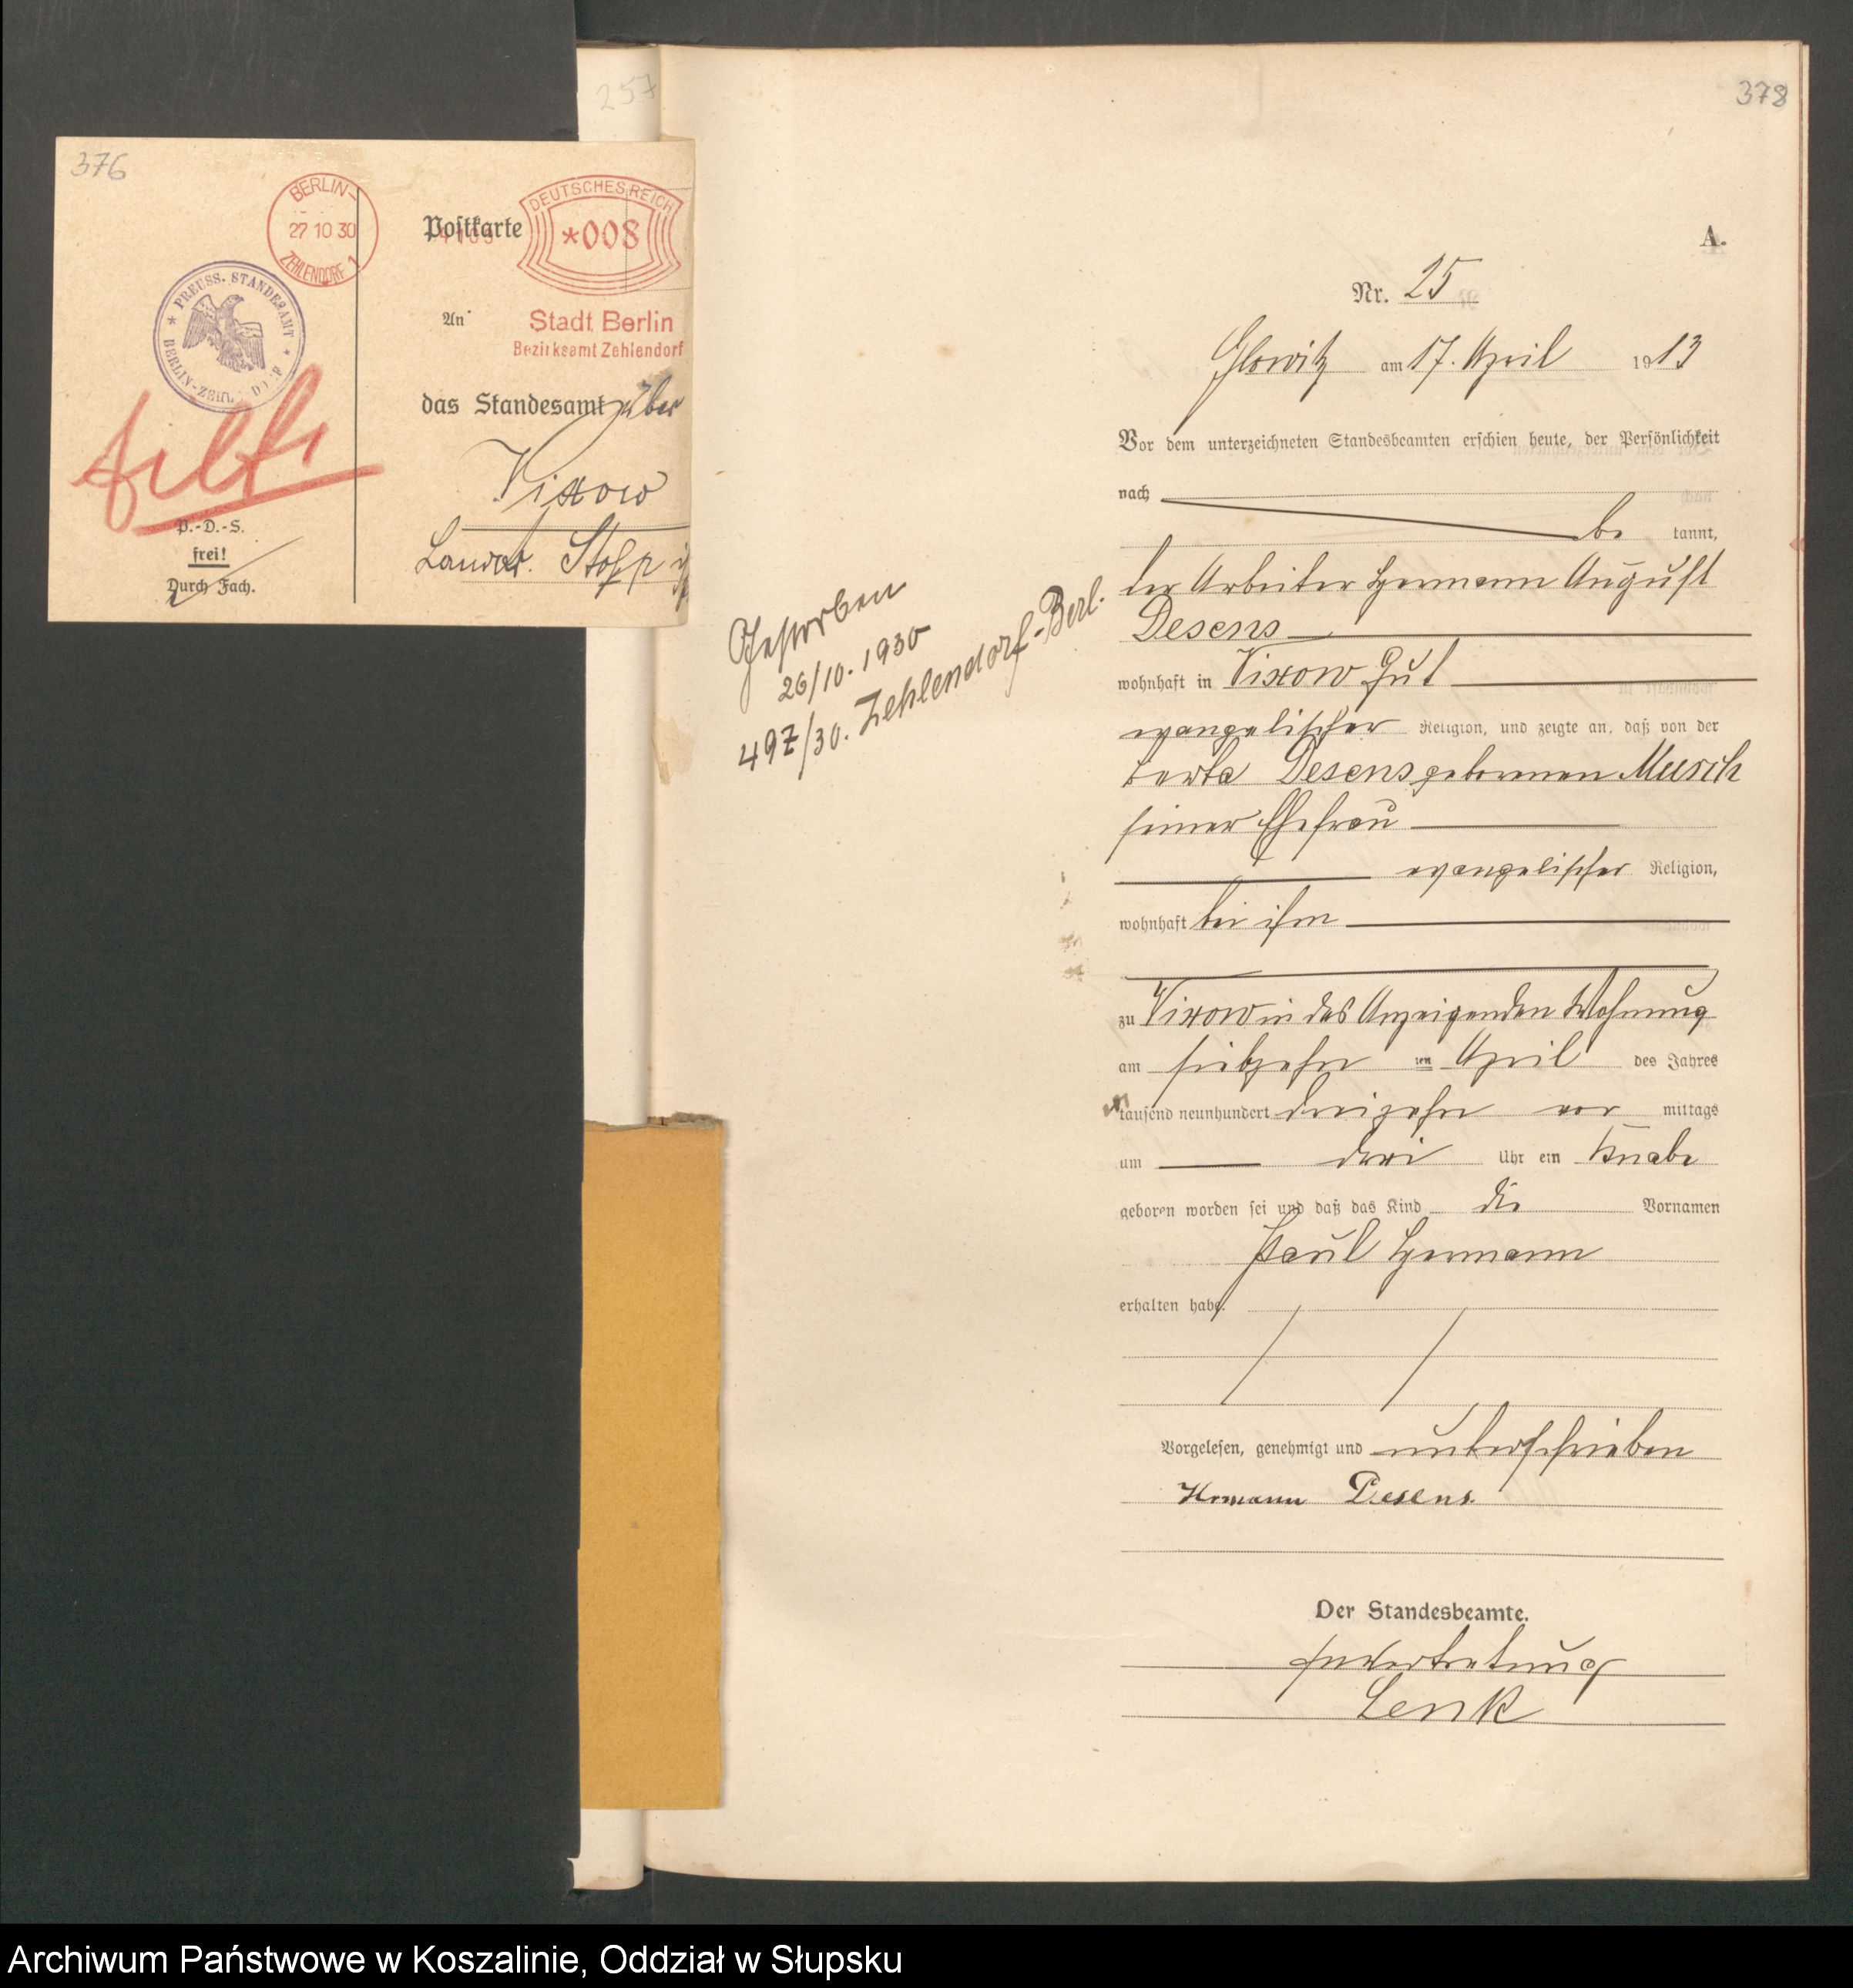 257
378
376
BERLIN-
27 10 30
ZEHLENDORF 1
Postkarte
DEUTSCHES REICH
*008
* PREUSS. STANDESAMT *
An
Stadt Berlin
Bezirksamt Zehlendorf
das Standesamt über
Vixow
Landkr. Stolp
P.-D.-S.
frei!
Durch Fach.
Gestorben
26/10. 1930
497/30. Zehlendorf-Berl.
A.
Nr. 25
Glowitz am 17. April 1913
Vor dem unterzeichneten Standesbeamten erschien heute, der Persönlichkeit
nach
be kannt,
der Arbeiter Hermann August
Desens
wohnhaft in Vixow Gut
evangelischer Religion, und zeigte an, daß von der
Desens geborenen Musch
seiner Ehefrau
evangelischer Religion,
wohnhaft bei ihm
zu Vixow in des Anzeigenden Wohnung
am siebzehn ten April des Jahres
tausend neunhundert dreizehn vor mittags
um drei Uhr ein Knabe
geboren worden sei und daß das Kind die Vornamen
Paul Hermann
erhalten habe.
Vorgelesen, genehmigt und unterschrieben
Hermann Desens.
Der Standesbeamte.
In Vertretung
Lenk
Archiwum Państwowe w Koszalinie, Oddział w Słupsku